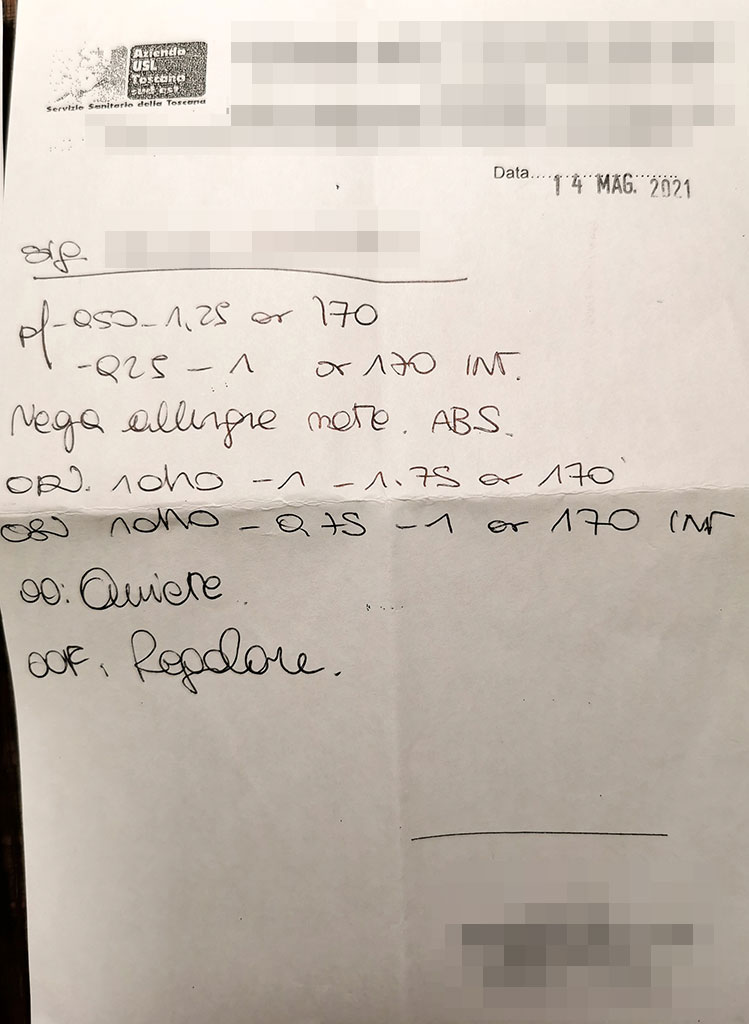 Azienda
USL
Toscana
sud est
Servizio Sanitario della Toscana
Data.................................
14 MAG. 2021
Sig.
pf -0,50 -1,25 ax 170
-0,25 - 1 ax 170 INT.
Nega allergie note. ABS.
ODV. 10/10 -1 -1.75 ax 170
OSV 10/10 -0,75 -1 ax 170 INT
OO: Quiete
OOF. Regolare.